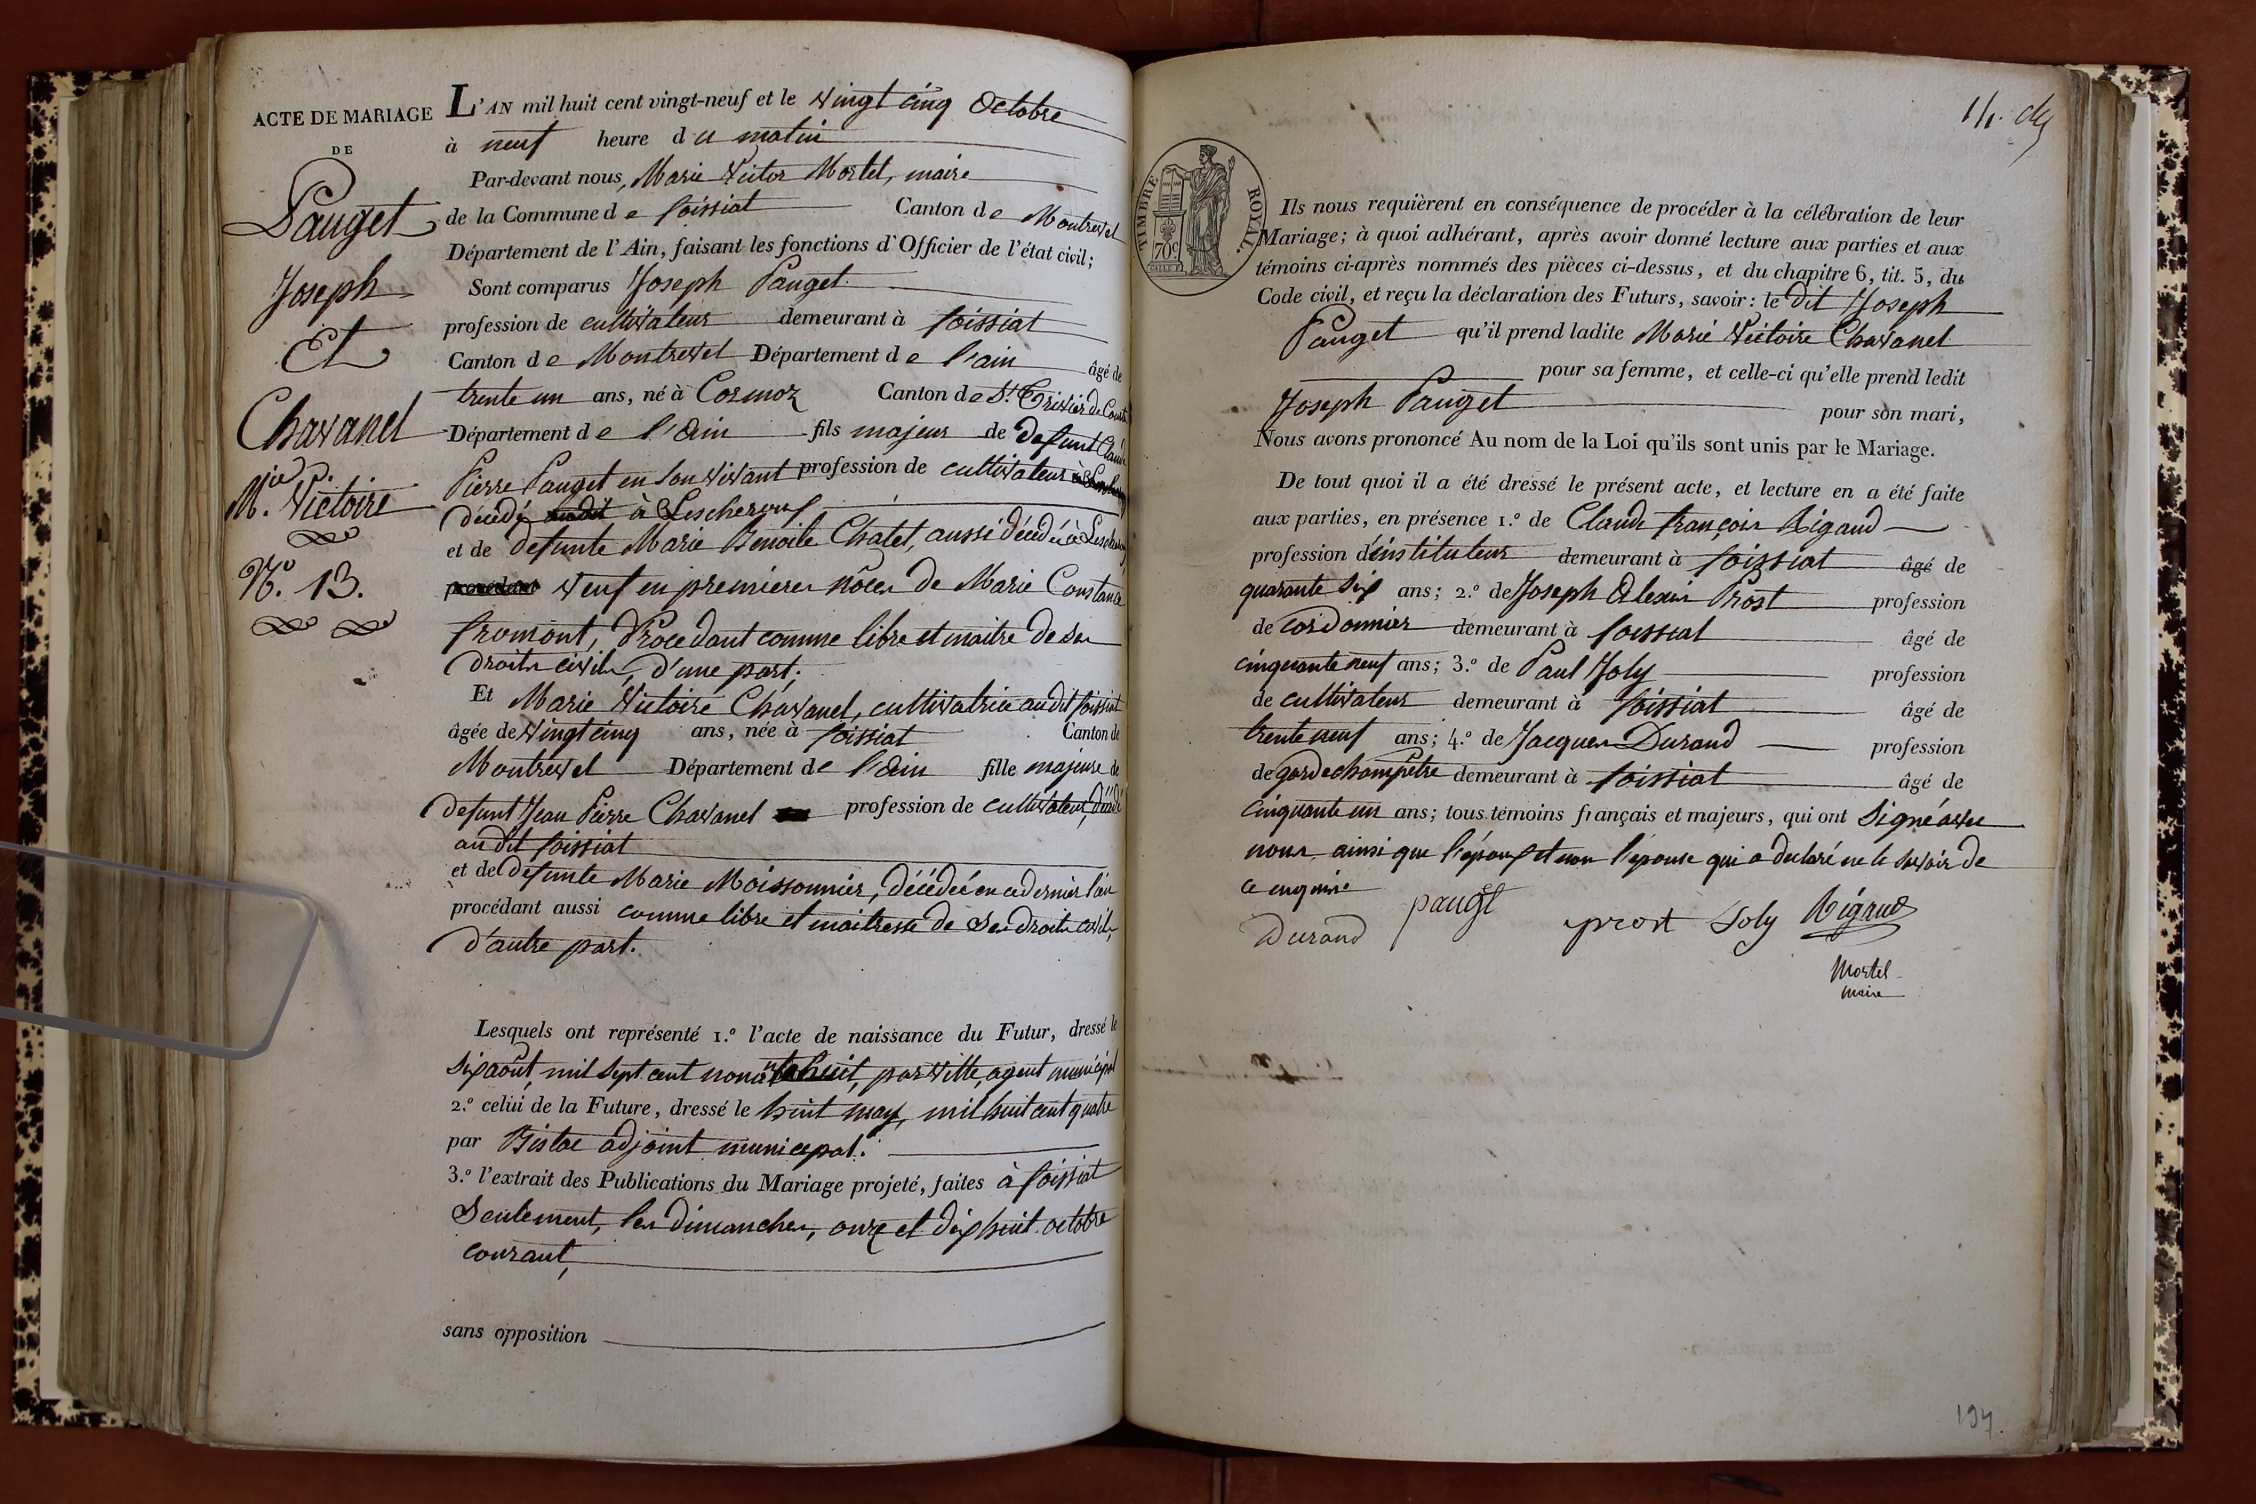 ACTE DE MARIAGE
DE
Pauget
Joseph
Et
Chavanel
M.ie Victoire
N.o 13.
L'AN mil huit cent vingt-neuf et le vingt cinq Octobre
à neuf heure du matin
Par-devant nous, Marie Victor Mortel, maire
de la Commune de foissiat Canton de Montrevel
Département de l'Ain, faisant les fonctions d'Officier de l'état civil;
Sont comparus Joseph Pauget
profession de cultivateur demeurant à foissiat
Canton de Montrevel Département de l'ain âgé de
trente un ans, né à Cormoz Canton de St Trivier de Courtes
Département de l'Ain fils majeur de defunt Claude
Pierre Pauget en son vivant profession de cultivateur
décédé à Lescheroux
et de defunte Marie Benoite Chatet, aussi décédée à Lescheroux
veuf en premieres nôces de Marie Constance
fromont, Procedant comme libre et maitre de ses
droits civils, d'une part;
Et Marie Victoire Chavanel, cultivatrice audit foissiat
âgée de vingt cinq ans, née à foissiat Canton de
Montrevel Département de l'Ain fille majeure de
defunt Jean Pierre Chavanel profession de cultivateur, décédé
audit foissiat
et de defunte Marie Moissonnier, décédée en ce dernier lieu
procédant aussi comme libre et maitresse de ses droits civils,
d'autre part.
Lesquels ont représenté 1.o l'acte de naissance du Futur, dressé le
six août, mil sept cent nonante huit, par Vitte, agent municipal
2.o celui de la Future, dressé le huit may, mil huit cent quatre
par adjoint municipal.
3.o l'extrait des Publications du Mariage projeté, faites à foissiat
Seulement, les dimanches, onze et dix huit octobre
courant,
sans opposition
TIMBRE ROYAL.
70c
Ils nous requièrent en conséquence de procéder à la célébration de leur
Mariage; à quoi adhérant, après avoir donné lecture aux parties et aux
témoins ci-après nommés des pièces ci-dessus, et du chapitre 6, tit. 5, du
Code civil, et reçu la déclaration des Futurs, savoir: le dit Joseph
Pauget qu'il prend ladite Marie Victoire Chavanel
pour sa femme, et celle-ci qu'elle prend ledit
Joseph Pauget pour son mari,
Nous avons prononcé Au nom de la Loi qu'ils sont unis par le Mariage.
De tout quoi il a été dressé le présent acte, et lecture en a été faite
aux parties, en présence 1.o de Claude françois Rigaud
profession d'instituteur demeurant à foissiat âgé de
quarante six ans; 2.o de Joseph Alexis Prost profession
de cordonnier demeurant à foissiat âgé de
cinquante neuf ans; 3.o de Paul Joly profession
de cultivateur demeurant à foissiat âgé de
trente neuf ans; 4.o de Jacques Durand profession
de garde champêtre demeurant à foissiat âgé de
cinquante un ans; tous témoins français et majeurs, qui ont signé avec
nous ainsi que l'époux et non l'épouse qui a declaré ne le savoir de
ce enquise
Durand pauget prost Joly Rigaud
Mortel
maire
197.